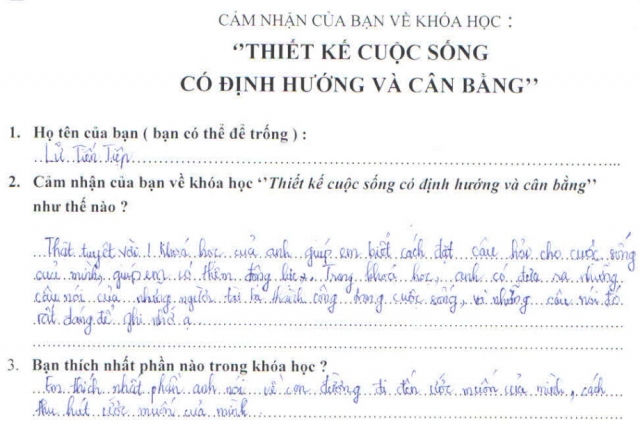 CẢM NHẬN CỦA BẠN VỀ KHÓA HỌC :
‘’THIẾT KẾ CUỘC SỐNG
CÓ ĐỊNH HƯỚNG VÀ CÂN BẰNG’’
1. Họ tên của bạn ( bạn có thể để trống ) :
Lử Tiến Tiệp
2. Cảm nhận của bạn về khóa học ‘’Thiết kế cuộc sống có định hướng và cân bằng’’
như thế nào ?
Thật tuyệt vời ! Khoá học của anh giúp em biết cách đặt câu hỏi cho cuộc sống
của mình, giúp em có thêm động lực. Trong khoá học, anh có đưa ra những
câu nói của những người thành công trong cuộc sống, và những câu nói đó
rất đáng để ghi nhớ ạ
3. Bạn thích nhất phần nào trong khóa học ?
Em thích nhất phần anh nói về con đường đi đến ước muốn của mình, cách
thu hút ước muốn của mình.